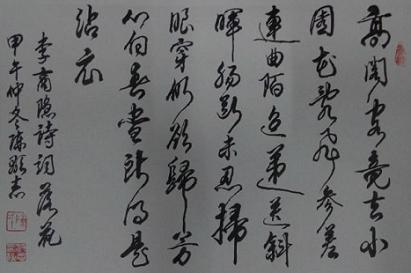 高閣客竟去小
園花亂飛參差
連曲陌迢遞送斜
暉腸斷未忍掃
眼穿仍欲歸芳
心向春盡所得是
沾衣
李商隱詩詞落花
甲午仲冬陳志